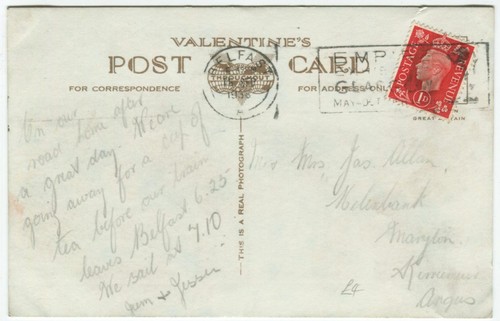 VALENTINE'S
POST CARD
FOR CORRESPONDENCE
FOR ADDRESS ONLY
BELFAST
EMPIRE
MAY-OCT
POSTAGE
REVENUE
1D
GREAT BRITAIN
THIS IS A REAL PHOTOGRAPH
On our
road home after
a great day. Now
going away for a cup of
tea before our train
leaves Belfast 6.25
We sail at 7.10
Jim & Jessie
Mrs Jas. Allan,
Maryton,
Kirriemuir
Angus